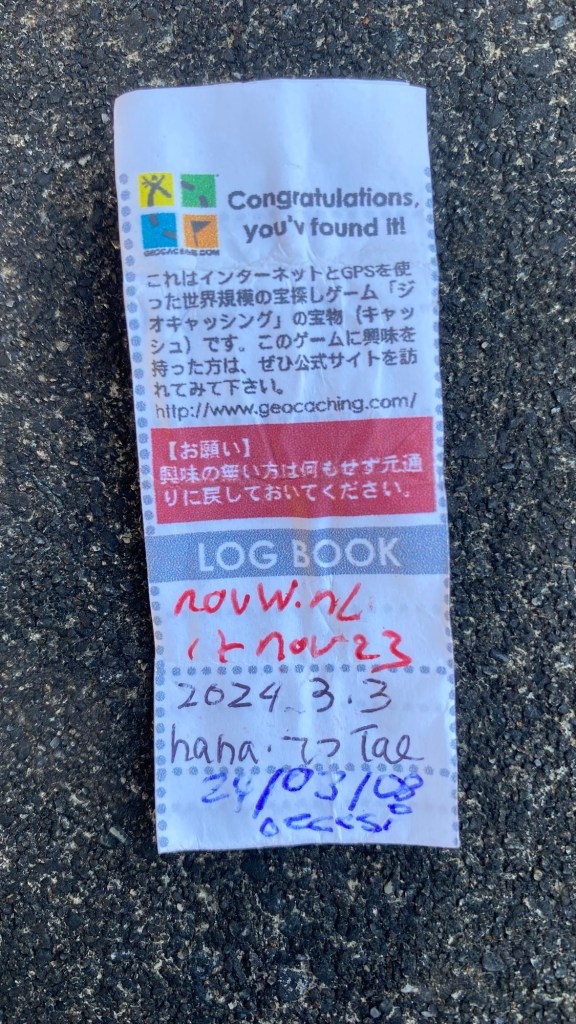 GEOCACHING.COM
Congratulations,
you'v found it!
これはインターネットとGPSを使
った世界規模の宝探しゲーム「ジ
オキャッシング」の宝物（キャッ
シュ）です。このゲームに興味を
持った方は、ぜひ公式サイトを訪
れてみて下さい。
http://www.geocaching.com/
【お願い】
興味の無い方は何もせず元通
りに戻しておいてください。
LOG BOOK
nov 23
2024.3.3
hana. てつ Tae
24/03/08